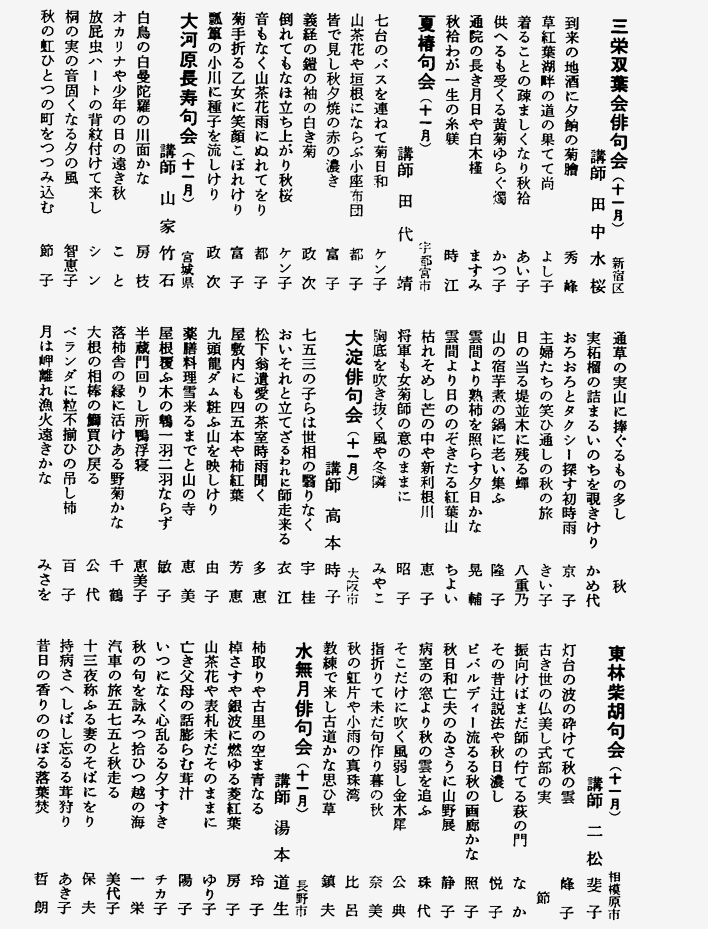 三栄双葉会俳句会（十一月） 新宿区
講師 田中水桜
到来の地酒に夕餉の菊膾 秀峰
草紅葉湖畔の道の果てて尚 よし子
着ることの疎ましくなり秋袷 あい子
供へるも受くる黄菊ゆらぐ燭 かつ子
通院の長き月日や白木槿 ますみ
秋袷わが一生の糸躾 時江
夏椿句会（十一月） 宇都宮市
講師 田代靖
七台のバスを連ねて菊日和 ケン子
山茶花や垣根にならぶ小座布団 都子
皆で見し秋夕焼の赤の濃き 富子
義経の鎧の袖の白き菊 政次
倒れてもなほ立ち上がり秋桜 ケン子
音もなく山茶花雨にぬれてをり 都子
菊手折る乙女に笑顔こぼれけり 富子
瓢箪の小川に種子を流しけり 政次
大河原長寿句会（十一月） 宮城県
講師 山家竹石
白鳥の白曼陀羅の川面かな 房枝
オカリナや少年の日の遠き秋 こと
放屁虫ハートの背紋付けて来し シン
桐の実の音固くなる夕の風 智恵子
秋の虹ひとつの町をつつみ込む 節子
通草の実山に捧ぐるもの多し 秋
実柘榴の詰まるいのちを覗きけり かめ代
おろおろとタクシー探す初時雨 京子
主婦たちの笑ひ通しの秋の旅 きい子
日の当る堤並木に残る蟬 八重乃
山の宿芋煮の鍋に老い集ふ 隆子
雲間より熟柿を照らす夕日かな 晃輔
雲間より日ののぞきたる紅葉山 ちよい
枯れそめし芒の中や新利根川 恵子
将軍も女菊師の意のままに 昭子
胸底を吹き抜く風や冬隣 みやこ
大淀俳句会（十一月） 大阪市
講師 高本時子
七五三の子らは世相の翳りなく 宇桂
おいそれと立てざるわれに師走来る 衣江
松下翁遺愛の茶室時雨聞く 多恵
屋敷内にも四五本や柿紅葉 芳恵
九頭龍ダム粧ふ山を映しけり 由子
薬膳料理雪来るまでと山の寺 恵美
屋根覆ふ木の鵯一羽二羽ならず 敏子
半蔵門回りし所鴨浮寝 恵美子
落柿舎の縁に活けある野菊かな 千鶴
大根の相棒の鰤買ひ戻る 公代
ベランダに粒不揃ひの吊し柿 百子
月は岬離れ漁火遠きかな みさを
東林柴胡句会（十一月） 相模原市
講師 二松斐子
灯台の波の砕けて秋の雲 峰子
古き世の仏美し式部の実 節
振向けばまだ師の佇てる萩の門 なか
その昔辻説法や秋日濃し 悦子
ビバルディー流るる秋の画廊かな 照子
秋日和亡夫のゐさうに山野展 静子
病室の窓より秋の雲を追ふ 珠代
そこだけに吹く風弱し金木犀 公典
指折りて未だ句作り暮の秋 奈美
秋の虹片や小雨の真珠湾 比呂
教練で来し古道かな思ひ草 鎮夫
水無月俳句会（十一月） 長野市
講師 湯本道生
柿取りや古里の空ま青なる 玲子
棹さすや銀波に燃ゆる菱紅葉 房子
山茶花や表札未だそのままに ゆり子
亡き父母の話膨らむ茸汁 陽子
いつになく心乱るる夕すすき チカ子
秋の句を詠みつ拾ひつ越の海 一栄
汽車の旅五七五と秋走る 美代子
十三夜称ふる妻のそばにをり 保夫
持病さへしばし忘るる茸狩り あき子
昔日の香りののぼる落葉焚 哲朗